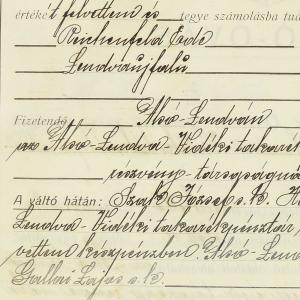 értékét felvettem és tegye számolásba tud
Reichenfeld Ede
Lendvaújfalu
Fizetendő Alsó-Lendván
az Alsó-Lendva-Vidéki takaré
részvény-társaságná
A váltó hátán: Szak József s.k. A
Lendva-Vidéki takarékpénztár,
vettem készpénzben Alsó-Lend
Gallai Lajos s.k.